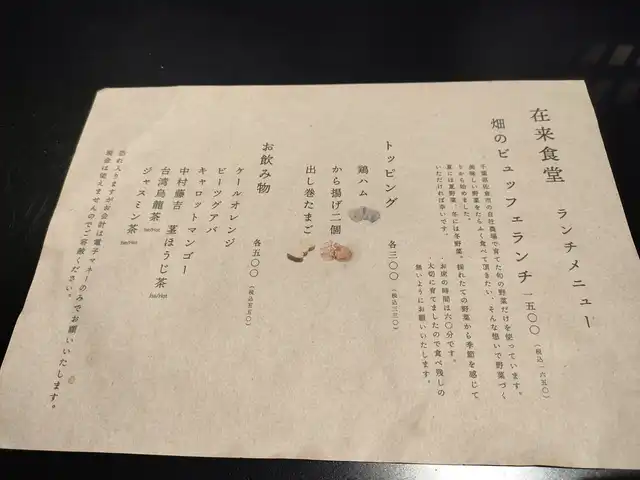 在来食堂　ランチメニュー
畑のビュッフェランチ 一五〇〇（税込一六五〇）
千葉県佐倉市の自社農場で育てた旬の野菜だけを使っています。
美味しい野菜をたらふく食べて頂きたい、そんな想いで野菜づく
りから始めました。
夏には夏野菜、冬には冬野菜。採れたての野菜から季節を感じて
いただければ幸いです。
・お席の時間は六〇分です。
・大切に育てましたので食べ残しの
無いようにお願いいたします。
トッピング　各三〇〇（税込三三〇）
鶏ハム
から揚げ二個
出し巻たまご
お飲み物　各五〇〇（税込五五〇）
ケールオレンジ
ビーツグアバ
キャロットマンゴー
中村藤吉　茎ほうじ茶 Ice/Hot
台湾烏龍茶 Ice/Hot
ジャスミン茶 Ice/Hot
恐れ入りますがお会計は電子マネーのみでお願いいたします。
現金は使えませんのでご容赦ください。